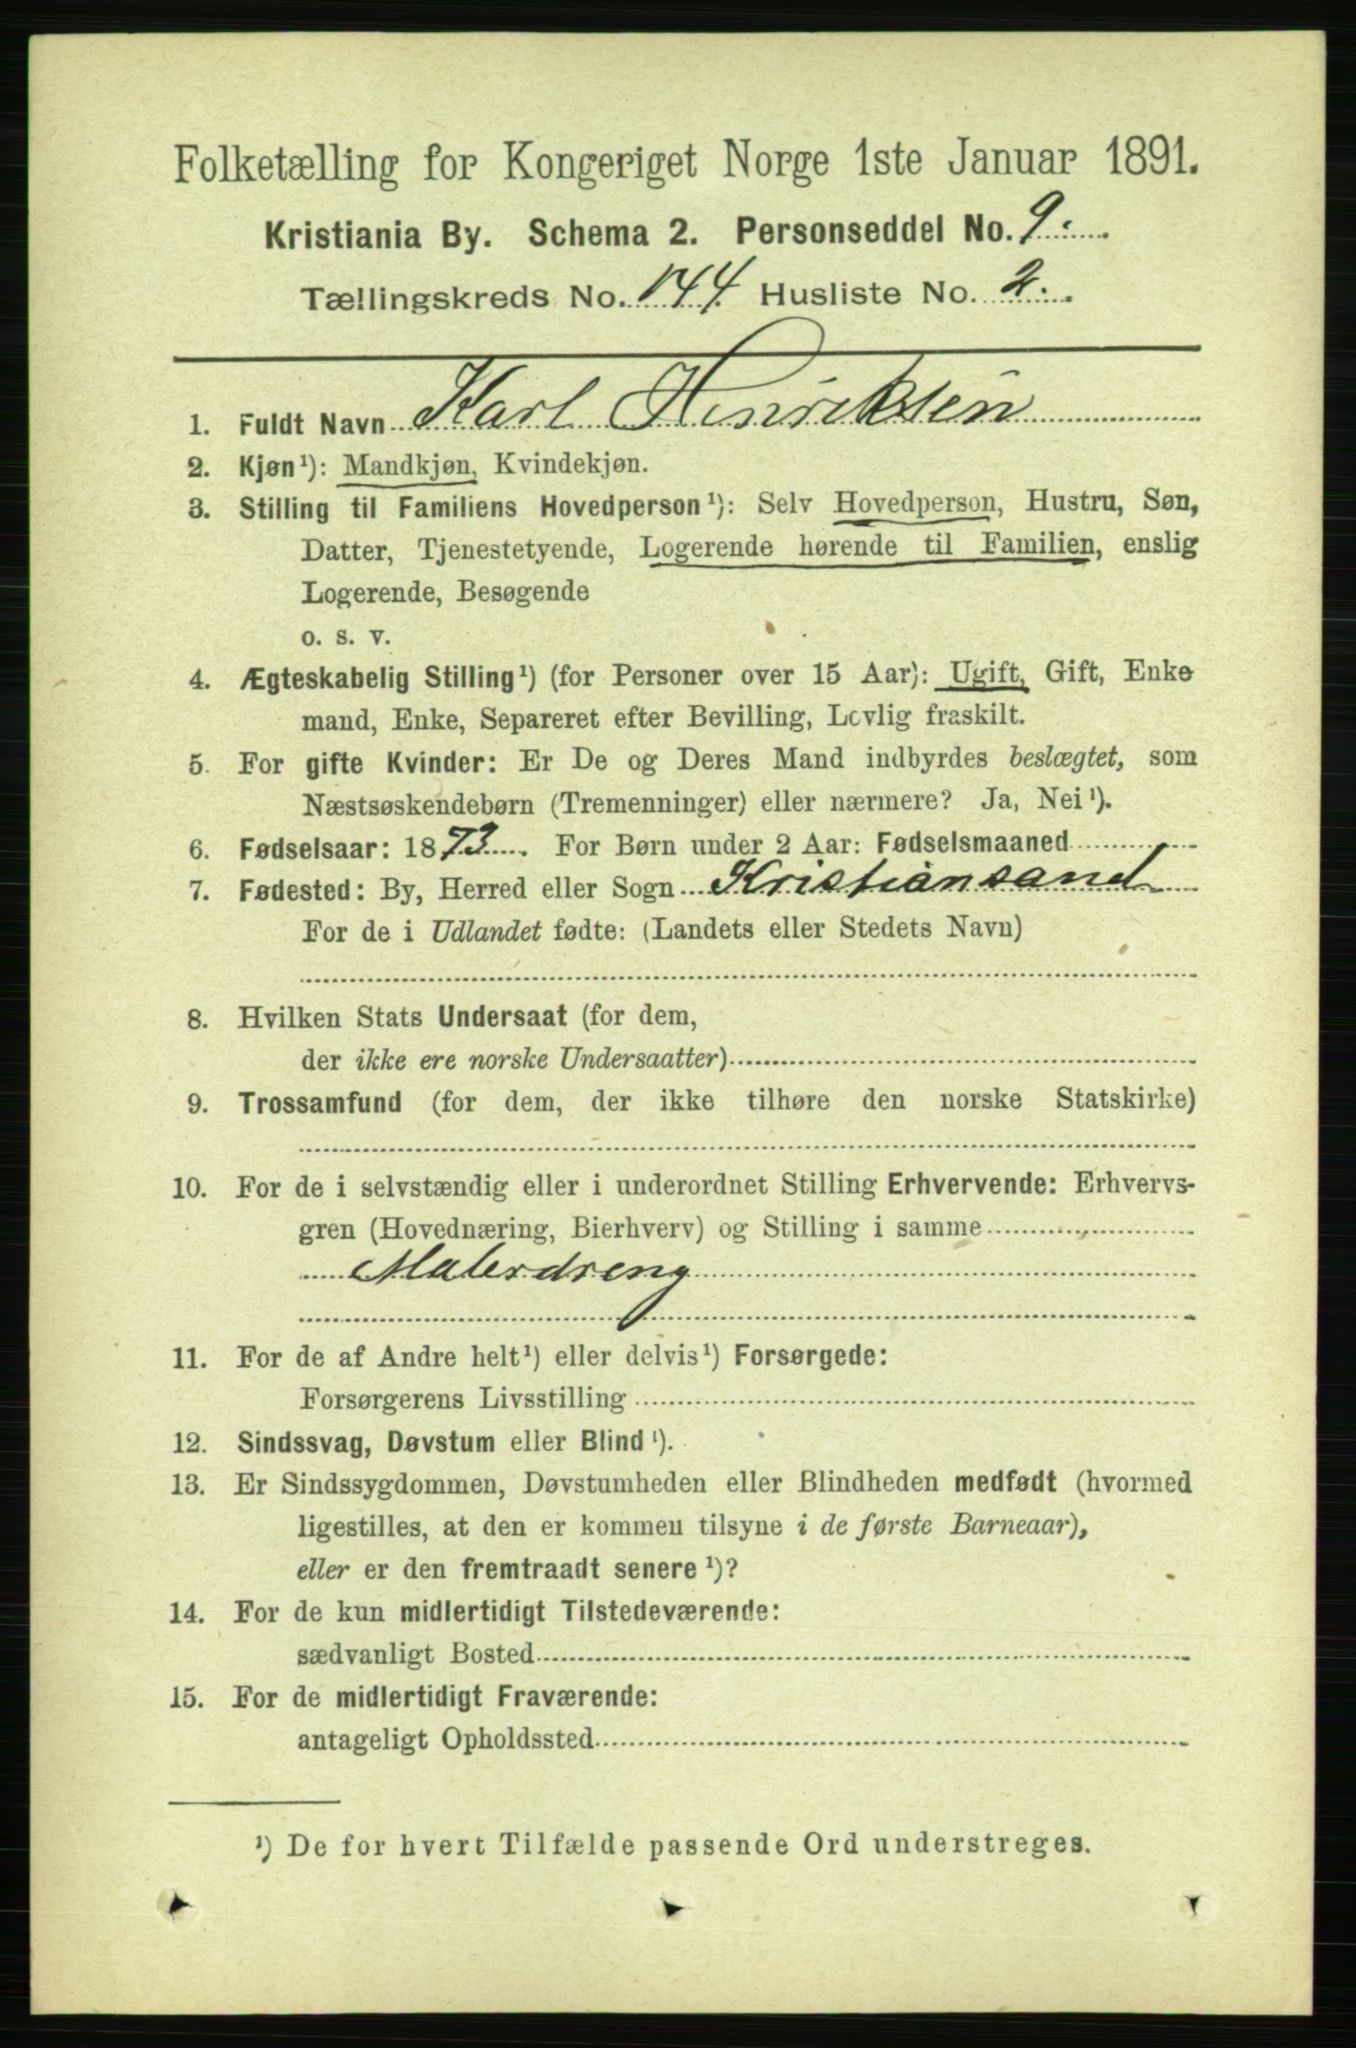 Folketælling for Kongeriget Norge 1ste Januar 1891.
Kristiania By. Schema 2. Personseddel No. 9.
Tællingskreds No. 144 Husliste No. 2.
1. Fuldt Navn Karl Henriksen
2. Kjøn¹): Mandkjøn, Kvindekjøn.
3. Stilling til Familiens Hovedperson¹): Selv Hovedperson, Hustru, Søn,
Datter, Tjenestetyende, Logerende hørende til Familien, enslig
Logerende, Besøgende
o. s. v.
4. Ægteskabelig Stilling¹) (for Personer over 15 Aar): Ugift, Gift, Enke
mand, Enke, Separeret efter Bevilling, Lovlig fraskilt.
5. For gifte Kvinder: Er De og Deres Mand indbyrdes beslægtet, som
Næstsøskendebørn (Tremenninger) eller nærmere? Ja, Nei¹).
6. Fødselsaar: 1873. For Børn under 2 Aar: Fødselsmaaned
7. Fødested: By, Herred eller Sogn Kristiansand
For de i Udlandet fødte: (Landets eller Stedets Navn)
8. Hvilken Stats Undersaat (for dem,
der ikke ere norske Undersaatter)
9. Trossamfund (for dem, der ikke tilhøre den norske Statskirke)
10. For de i selvstændig eller i underordnet Stilling Erhvervende: Erhvervs-
gren (Hovednæring, Bierhverv) og Stilling i samme
Malerdreng
11. For de af Andre helt¹) eller delvis¹) Forsørgede:
Forsørgerens Livsstilling
12. Sindssvag, Døvstum eller Blind¹).
13. Er Sindssygdommen, Døvstumheden eller Blindheden medfødt (hvormed
ligestilles, at den er kommen tilsyne i de første Barneaar),
eller er den fremtraadt senere¹)?
14. For de kun midlertidigt Tilstedeværende:
sædvanligt Bosted
15. For de midlertidigt Fraværende:
antageligt Opholdssted
¹) De for hvert Tilfælde passende Ord understreges.